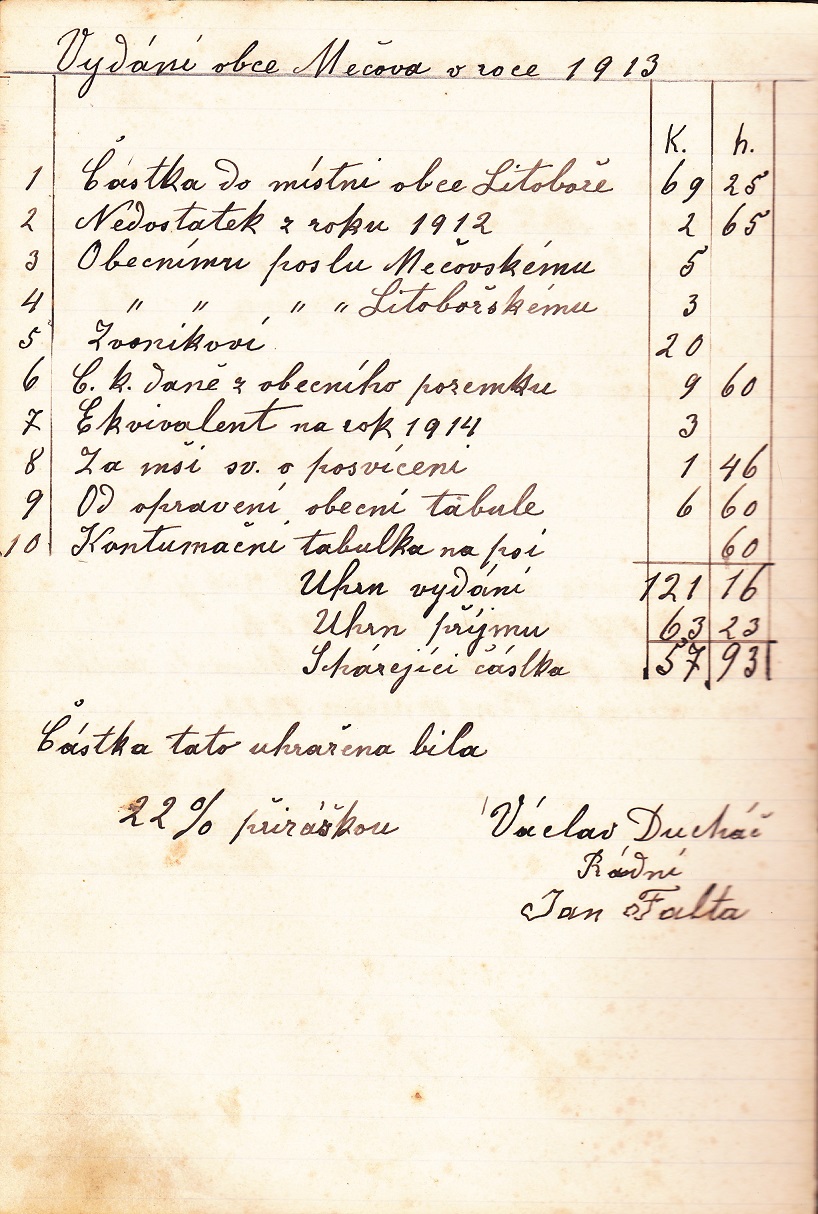 Vydání obce Mečova v roce 1913
K. h.
1 Částka do místni obce Litoboře 69 25
2 Nedostatek z roku 1912 2 65
3 Obecnímu poslu Mečovskému 5
4 " " " " Litobořskému 3
5 Zvoníkoví 20
6 C. k. daně z obecního pozemku 9 60
7 Ekvivalent na rok 1914 3
8 Za mši sv. o posvíceni 1 46
9 Od opravení obecní tabule 6 60
10 Kontumační tabulka na psi 60
Uhrn vydání 121 16
Uhrn příjmu 63 23
Schárejíci částka 57 93
Částka tato uhražena bila
22% přirážkou Václav Ducháč
Rádní
Jan Falta